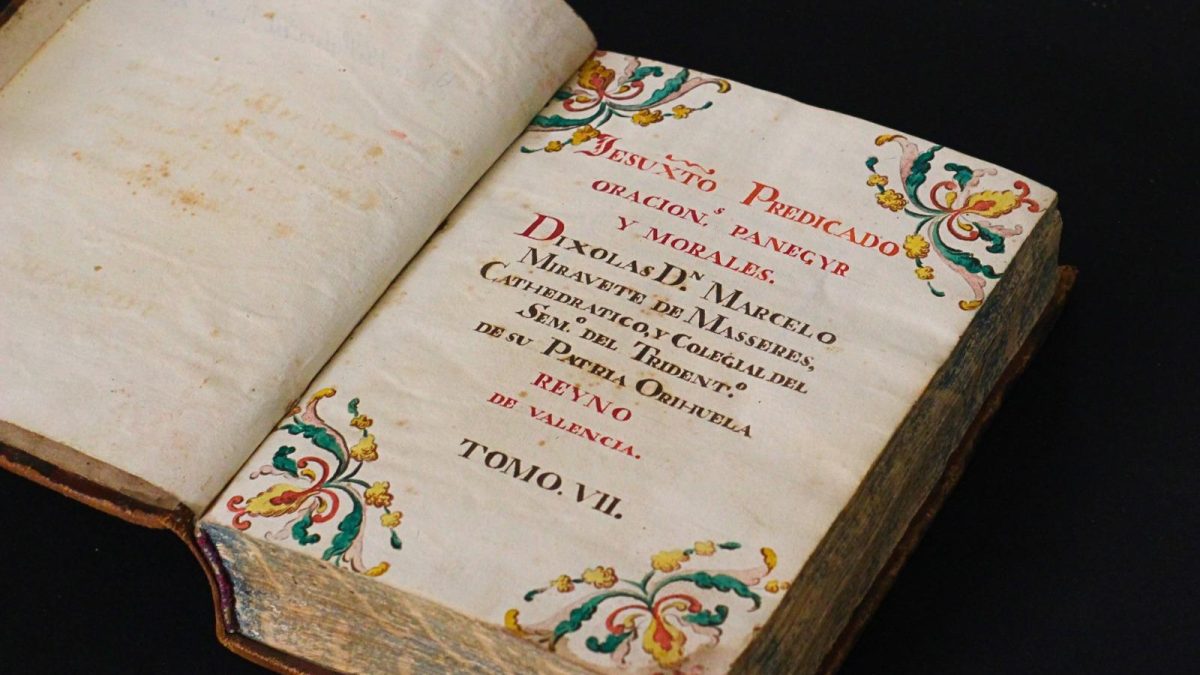 JESUXTO PREDICADO
ORACION.S PANEGYR
Y MORALES.
DIXOLAS D.N MARCELO
MIRAVETE DE MASSERES,
CATHEDRATICO, Y COLEGIAL DEL
SEM.O DEL TRIDENT.O
DE SU PATRIA ORIHUELA
REYNO
DE VALENCIA.
TOMO. VII.